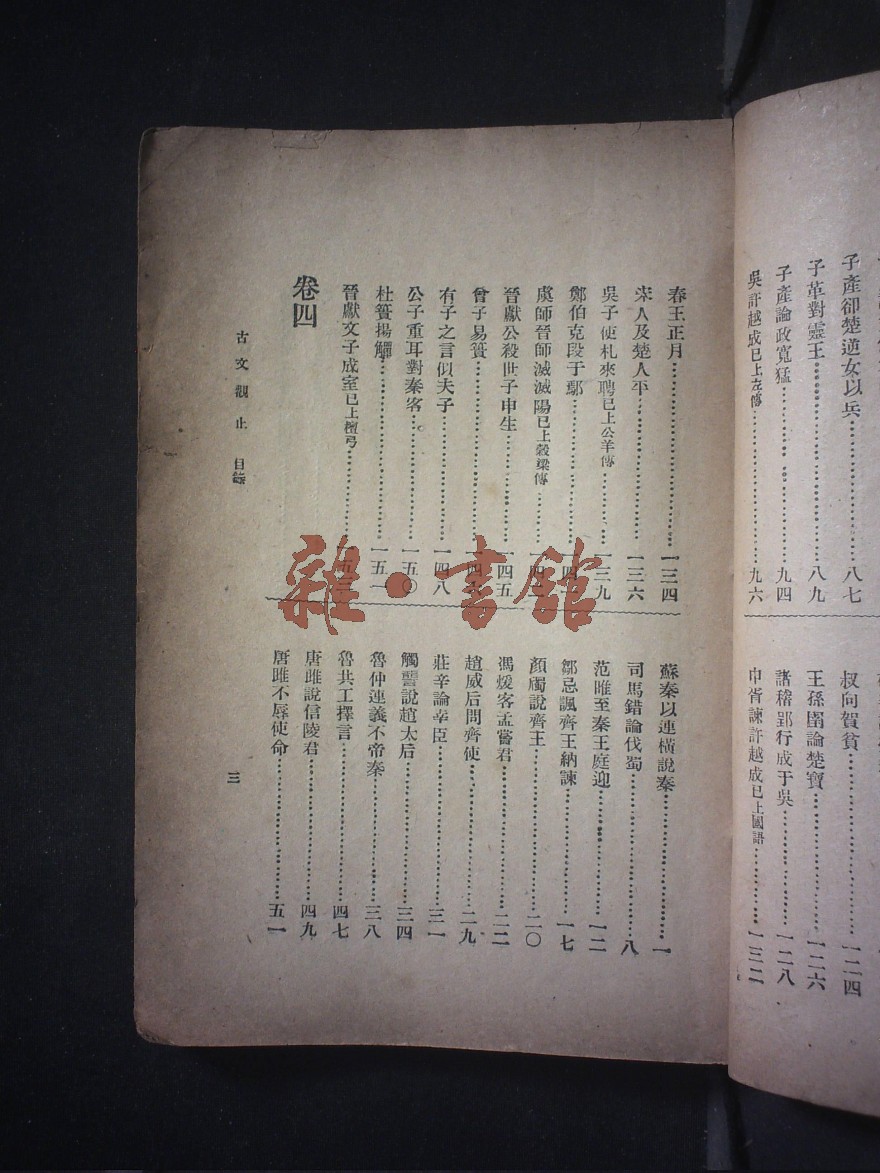 子產卻楚逆女以兵……八七
子革對靈王……八九
子產論政寬猛……九四
吳許越成已上左傳……九六
叔向賀貧……一二四
王孫圉論楚寶……一二六
諸稽郢行成于吳……一二八
申胥諫許越成已上國語……一三二
春王正月……一三四
宋人及楚人平……一三六
吳子使札來聘已上公羊傳……一三九
鄭伯克段于鄢……一四
虞師晉師滅滅陽已上穀梁傳……一四
晉獻公殺世子申生……一四五
曾子易簀……一四
有子之言似夫子……一四八
公子重耳對秦客……一五〇
杜簣揚觶……一五一
晉獻文子成室已上檀弓……一五
卷四
蘇秦以連橫說秦……一
司馬錯論伐蜀……八
范雎至秦王庭迎……一二
鄒忌諷齊王納諫……一七
顏斶說齊王……二〇
馮煖客孟嘗君……二二
趙威后問齊使……二九
莊辛論幸臣……三一
觸讋說趙太后……三四
魯仲連義不帝秦……三八
魯共工擇言……四七
唐雎說信陵君……四九
唐雎不辱使命……五一
古文觀止 目錄
三
雜·書館